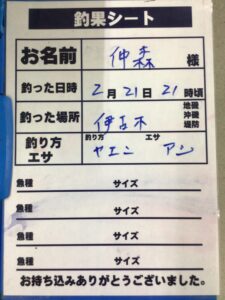 釣果シート
お名前 仲森 様
釣った日時 2月21日21時頃
釣った場所 伊古木 地磯 沖磯 堤防
釣り方 エサ
釣り方 ヤエン エサ アジ
魚種 サイズ
魚種 サイズ
魚種 サイズ
魚種 サイズ
お持ち込みありがとうございました。